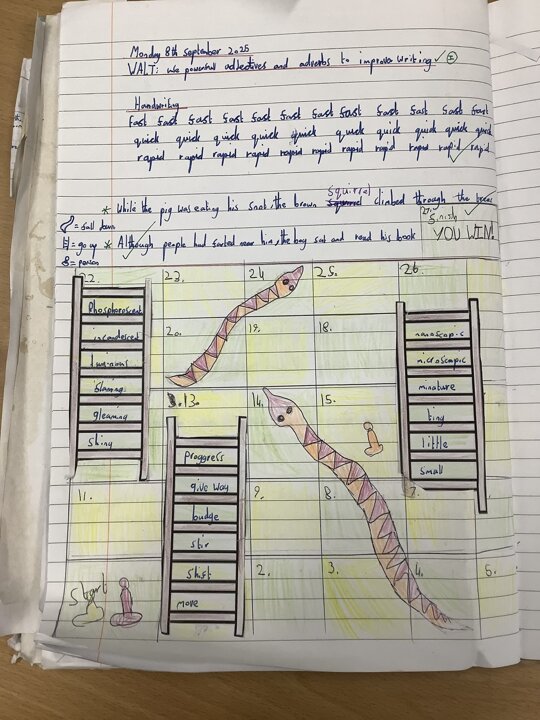 Monday 8th September 2025
WALT: use powerful adjectives and adverbs to improve writing.
Handwriting
fast fast fast fast fast fast fast fast fast fast fast
quick quick quick quick quick quick quick quick quick quick
rapid rapid rapid rapid rapid rapid rapid rapid rapid rapid
squirrel
* While the pig was eating his snot, the brown climbed through the trees
= fall down
= go up * Although people had sorted near him, the boy sat and read his book
= person
27. Finish
YOU WIN!
22. 23. 24 25. 26.
Phosphorescent
incandescent
luminous
blaming
gleaming
shiny
20. 19. 18.
nanoscopic
microscopic
minature
tiny
little
small
13. 14. 15.
proggress
give way
budge
stir
shift
move
11. 9. 8. 7.
Start 2. 3. 4. 6.